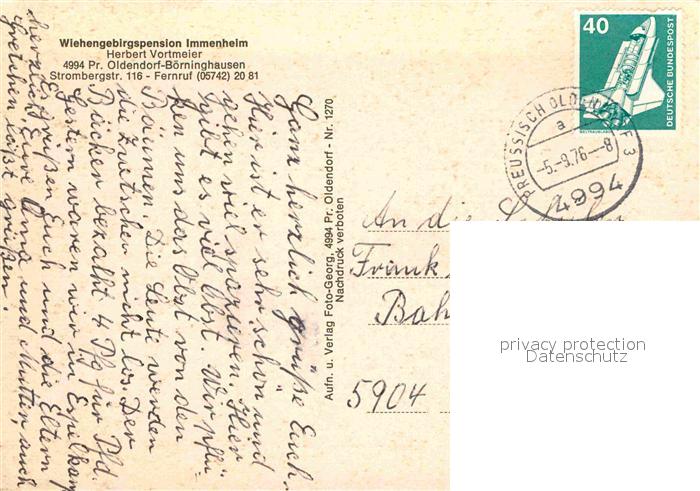 Wiehengebirgspension Immenheim
Herbert Vortmeier
4994 Pr. Oldendorf-Börninghausen
Strombergstr. 116 - Fernruf (05742) 20 81
40
DEUTSCHE BUNDESPOST
WELTRAUMLABOR
PREUSSISCH OLDENDORF 3
a
-5.-9.76--8
4994
Ganz herzlich grüße Euch.
Hier ist er sehr schön und
gehen viel spazieren. Hier
gibt es viel Obst. Wir pflü-
ken uns das Obst von den
Bäumen. Die Leute werden
die Zwetschen nicht los. Der
Bäcker bezahlt 4 Pfg für Pfd.
Gestern waren wir in Espelkamp
Es grüßen Euch und die Eltern
herzlich Eure Oma und Mutter, auch
Gretchen läßt grüßen.
Aufn. u. Verlag Foto-Georg, 4994 Pr. Oldendorf - Nr. 1270
Nachdruck verboten
An die
Frank
Bah
5904
privacy protection
Datenschutz